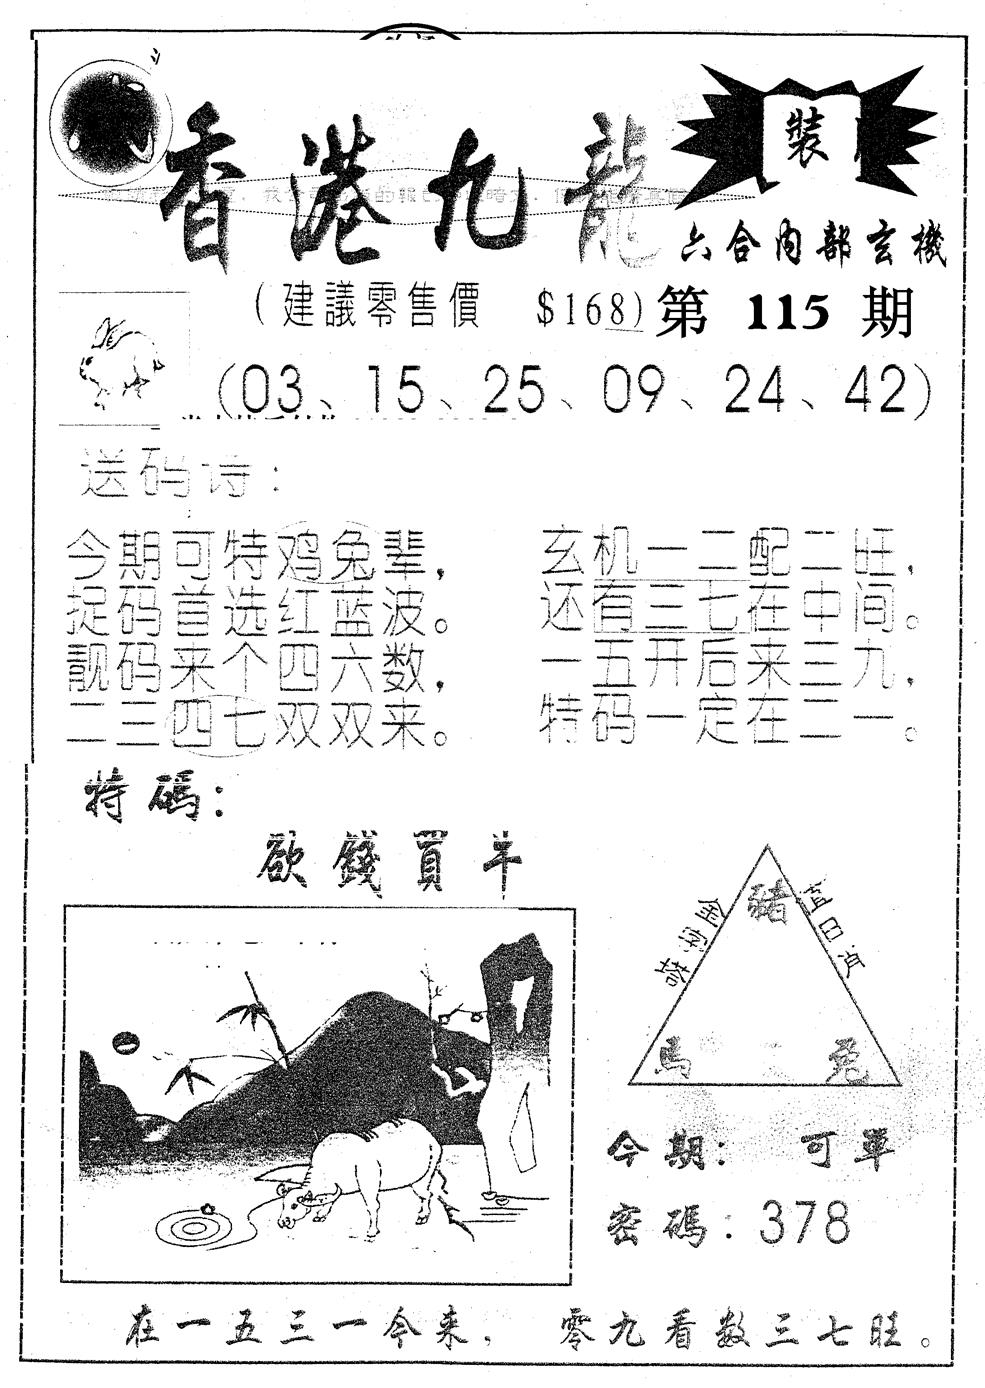 香港九龍
裝
六合内部玄機
(建議零售價 $168)
第 115 期
(03、15、25、09、24、42)
送码诗:
今期可特鸡兔辈,
捉码首选红蓝波。
靓码来个四六数,
二三四七双双来。
玄机一二配二旺,
还有三七在中间。
一五开后来三九,
特码一定在二一。
特碼:
欲錢買羊
金字塔
豬
馬
兔
今期: 可單
密碼:378
在一五三一今来, 零九看数三七旺。